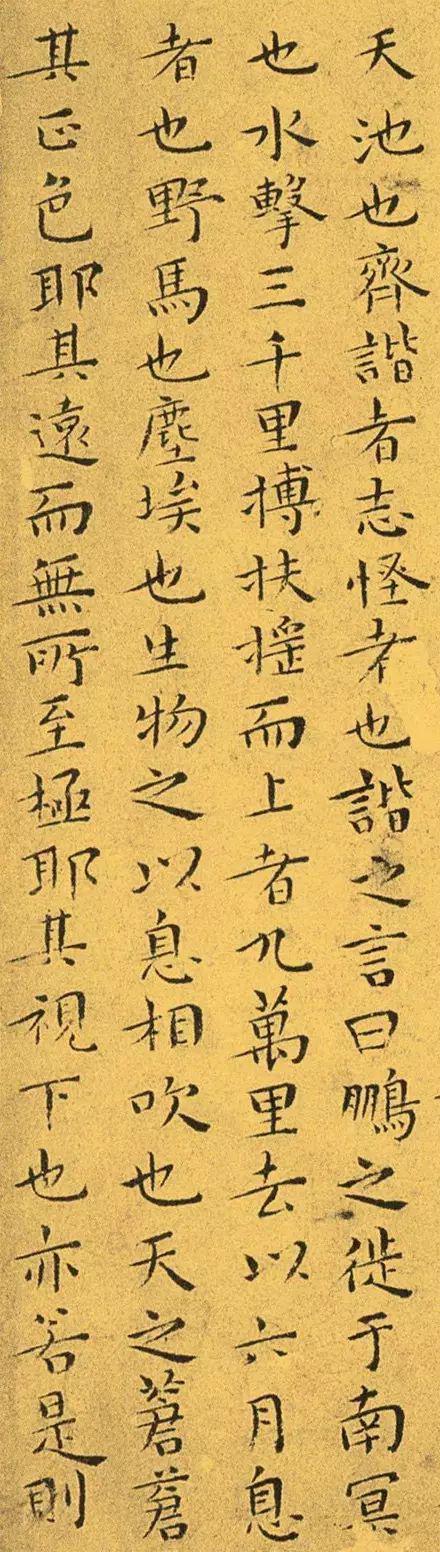 天池也齊諧者志怪者也諧之言曰鵬之徙于南冥
也水擊三千里摶扶搖而上者九萬里去以六月息
者也野馬也塵埃也生物之以息相吹也天之蒼蒼
其正色耶其遠而無所至極耶其視下也亦若是則